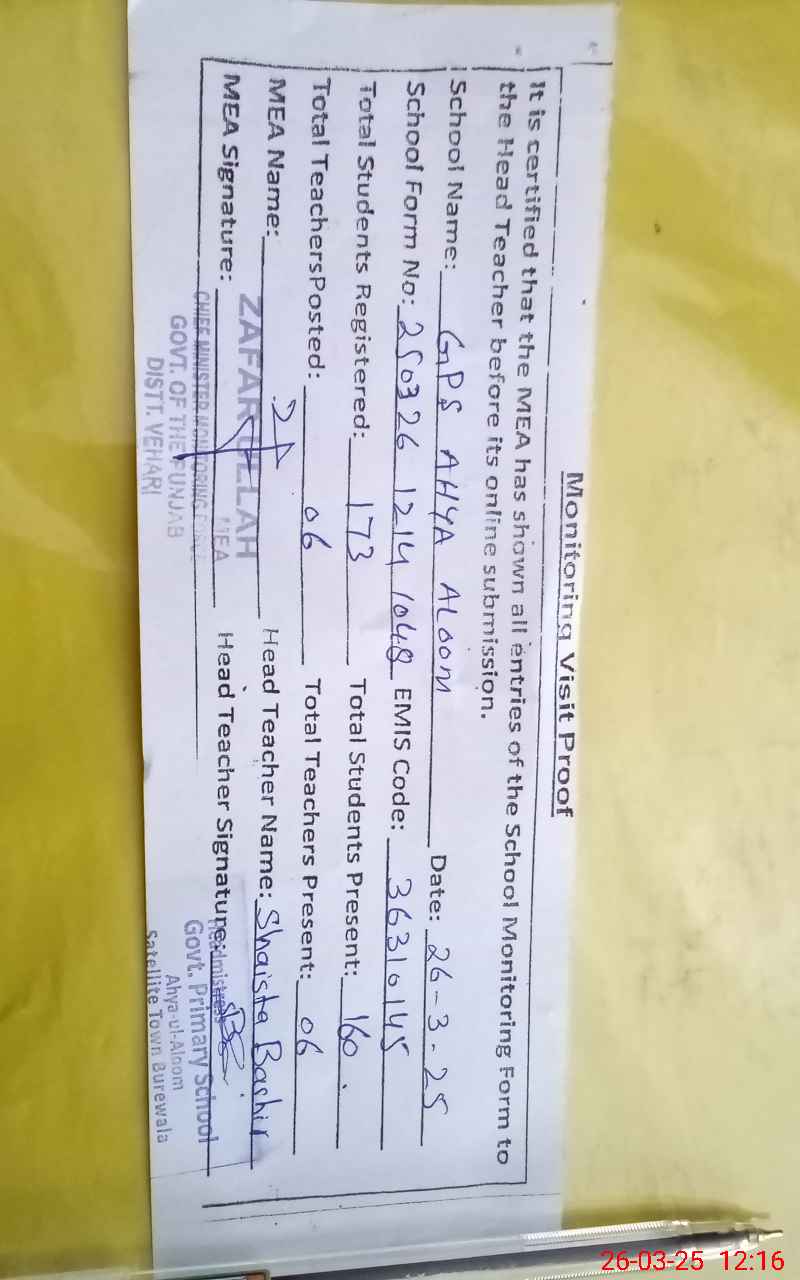 Monitoring Visit Proof
It is certified that the MEA has shown all entries of the School Monitoring Form to
the Head Teacher before its online submission.
School Name: GPS AHYA ALOOM Date: 26-3-25
School Form No: 250326 1214 1048 EMIS Code: 36310145
Total Students Registered: 173 Total Students Present: 160.
Total TeachersPosted: 06 Total Teachers Present: 06
MEA Name: Head Teacher Name: Shaista Bashir
MEA Signature: Head Teacher Signature:
ZAFARULLAH
MEA
CHIEF MINISTER MONITORING FORCE
GOVT. OF THE PUNJAB
DISTT. VEHARI
Headmistress
Govt. Primary School
Ahya-ul-Aloom
Satellite Town Burewala
26-03-25 12:16